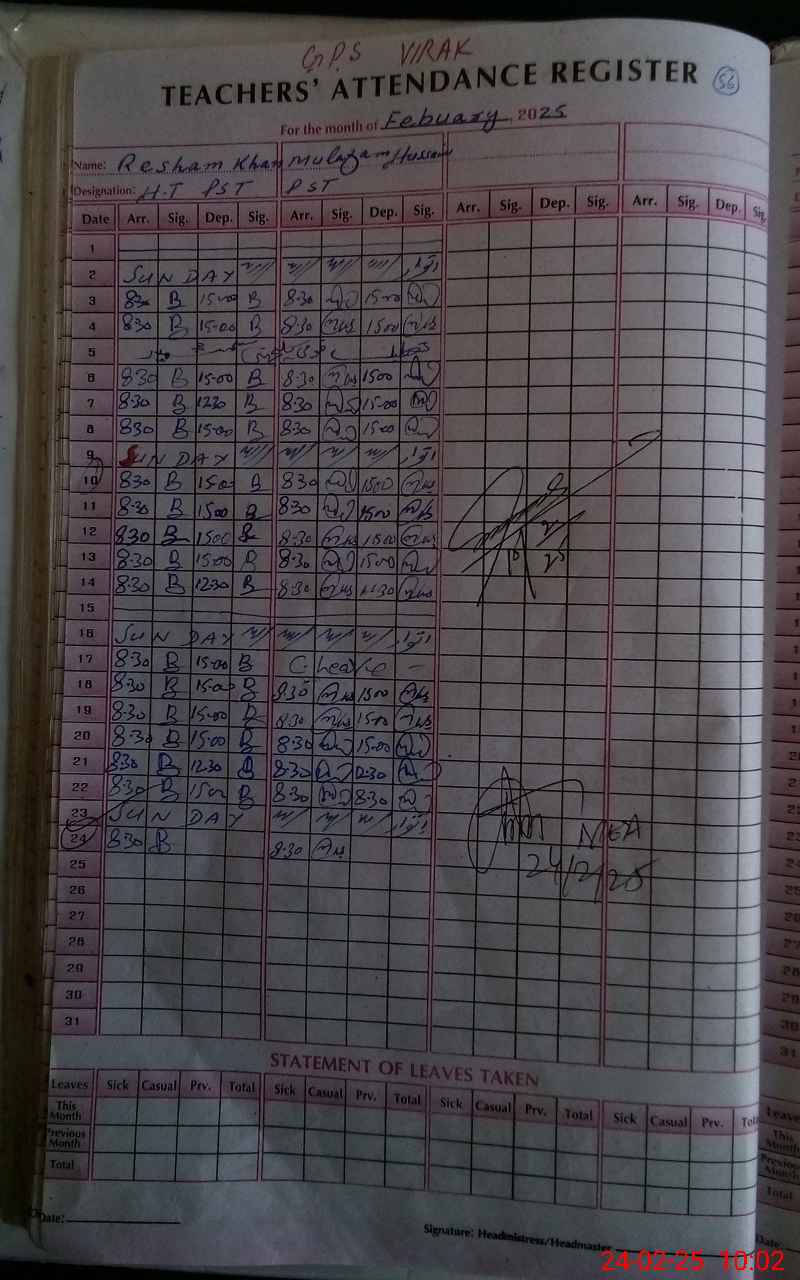 G.P.S VIRAK
TEACHERS' ATTENDANCE REGISTER 56
For the month of Febuary, 2025
Name: Resham Khan Mulazam Hussain
Designation: H.T PST PST
Date Arr. Sig. Dep. Sig. Arr. Sig. Dep. Sig. Arr. Sig. Dep. Sig. Arr. Sig. Dep. Sig.
1
2 SUNDAY
3 8:30 B 15-00 B 8:30 15-00
4 8:30 B 15-00 B 8:30 1500
5
6 8:30 B 15-00 B 8:30 1500
7 8:30 B 1230 B 8:30 15-00
8 8:30 B 15-00 B 8:30 15-00
9 SUNDAY
10 8:30 B 15-00 B 8:30 1500
11 8:30 B 1500 B 8:30 1500
12 8:30 B 1500 B 8:30 1500
13 8:30 B 15-00 B 8:30 15-00
14 8:30 B 1230 B 8:30
15
16 SUNDAY
17 8:30 B 15-00 B C. Leave
18 8:30 B 15-00 B 8:30 1500
19 8:30 B 15-00 B 8:30 15-00
20 8:30 B 15-00 B 8:30 15-00
21 8:30 B 1230 B 8:30 12:30
22 8:30 B 1500 B 8:30 8:30
23 SUNDAY
24 8:30 B 8:30
24/2/25
25
26
27
28
29
30
31
STATEMENT OF LEAVES TAKEN
Leaves Sick Casual Prv. Total Sick Casual Prv. Total Sick Casual Prv. Total Sick Casual Prv. Total
This Month
Previous Month
Total
Date:
Signature: Headmistress/Headmaster
24-02-25 10:02